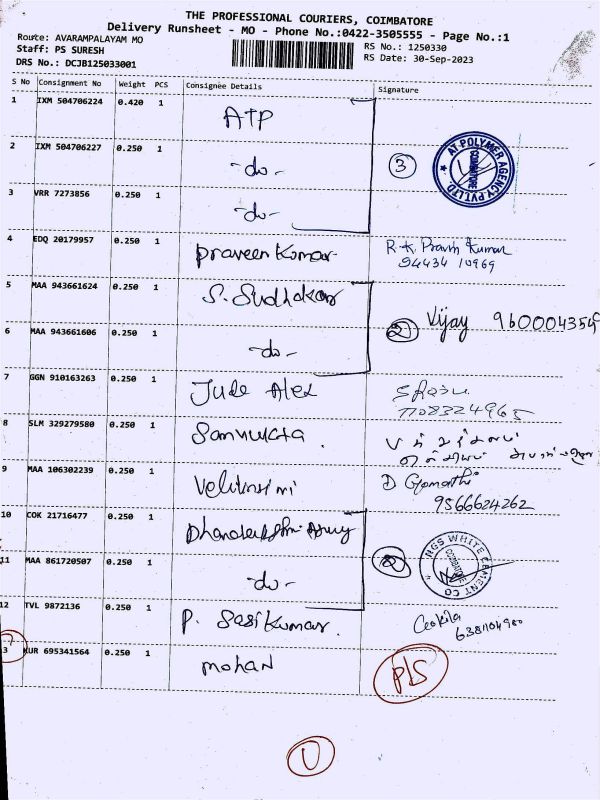 THE PROFESSIONAL COURIERS, COIMBATORE
Delivery Runsheet - MO - Phone No.:0422-3505555 - Page No.:1
Route: AVARAMPALAYAM MO
RS No.: 1250330
Staff: PS SURESH
RS Date: 30-Sep-2023
DRS No.: DCJB125033001
S No Consignment No Weight PCS Consignee Details Signature
1 IXM 504706224 0.420 1 ATP
2 IXM 504706227 0.250 1 -do- 3 AT POLYMER AGENCY PVT.LTD. COIMBATORE
3 VRR 7273856 0.250 1 -do-
4 EDQ 20179957 0.250 1 Praveen Kumar R.K. Pravin Kumar
94434 10969
5 MAA 943661624 0.250 1 S. Sudhakar
2 Vijay
6 MAA 943661606 0.250 1 -do-
7 GGN 910163263 0.250 1 Jude Alex
7708324965
8 SLM 329279580 0.250 1
9 MAA 106302239 0.250 1 D Gomathi
9566624262
10 COK 21716477 0.250 1
11 MAA 861720507 0.250 1 -do- 2 NGS WHITE CEMENT CO
12 TVL 9872136 0.250 1 P. Sasikumar.
13 KUR 695341564 0.250 1 Mohan P/S